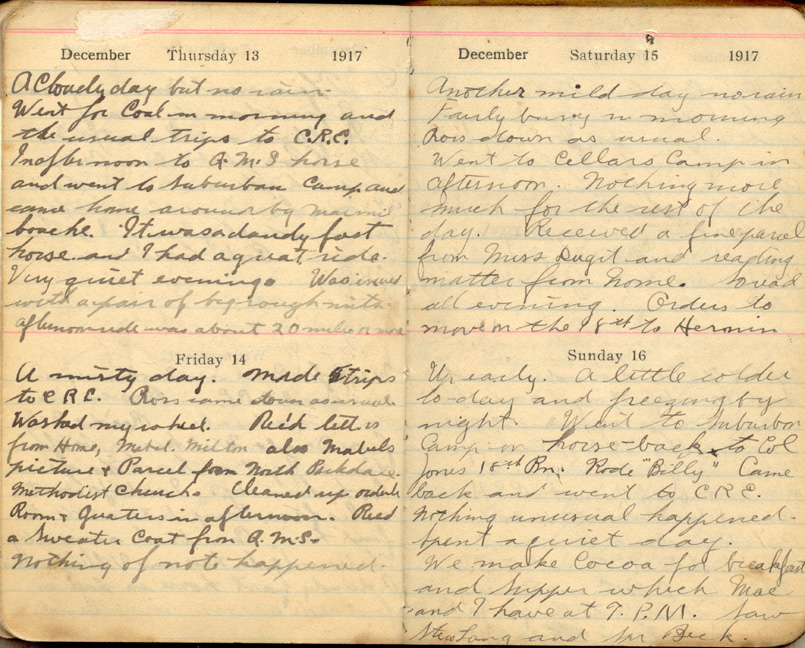 December Thursday 13 1917
A Cloudy day but no rain.
Went for Coal in morning and
the usual trips to C.R.C.
In afternoon to Q.M.S horse
and went to Suburban Camp and
came home around by
bouche. It was a dandy fast
horse and I had a great ride.
Very quiet evening. Was issued
with a pair of big rough mitts.
afternoon ride was about 20 miles or more
Friday 14
A misty day. Made trips
to C.R.C. Ross came down as usual.
Washed my wheel. Rec'd letters
from Home, Mabel, Milton also Mabels
picture & Parcel from North
Methodist Church. Cleaned up orderly
Room & Quarters in afternoon. Rec'd
a Sweater Coat from Q.M.S.
Nothing of note happened.
December Saturday 15 1917
Another mild day no rain
Fairly busy in morning
Ross down as usual.
Went to Cellars Camp in
afternoon. Nothing more
much for the rest of the
day. Received a fine parcel
from Miss and reading
matter from home. So read
all evening. Orders to
move on the 18th to Hersin
Sunday 16
Up early. A little colder
to-day and freezing by
night. Went to Suburban
Camp on horse-back to Col
Jones 18th Bn. Rode "Billy" Came
back and went to C.R.C.
Nothing unusual happened.
Spent a quiet day.
We make Cocoa for breakfast
and supper which Mac
and I have at 7. P.M. Saw
Stew Lang and Mr Beck.